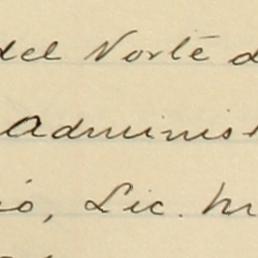 del Norte d
Adminis
io, Lic. M